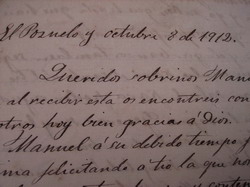 El Pozuelo y octubre 8 de 1912.
Queridos sobrinos Manu
al recibir esta os encontreis con
otros hoy bien gracias á dios.
Manuel á su debido tiempo
ima felicitando á tio la que no